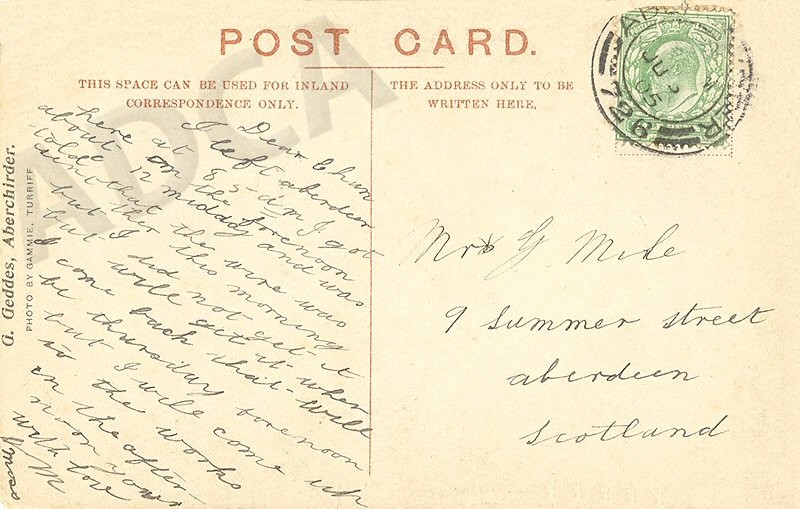 POST CARD.
THIS SPACE CAN BE USED FOR INLAND
CORRESPONDENCE ONLY.
THE ADDRESS ONLY TO BE
WRITTEN HERE.
Dear Chum
I left aberdeen
here at 8 5 am I got
about 12 midday and was
told on the forenoon
sent the wire was
that her this morning
but I did not get it
but I will when
I come back that will
be thursday forenoon
but I will come up
to the works
on the after
noon yours
with love
G. Geddes, Aberchirder.
PHOTO BY GAMMIE, TURRIFF
Mr G. Mile
9 Summer Street
aberdeen
Scotland
729
JU 2
05
ADCA